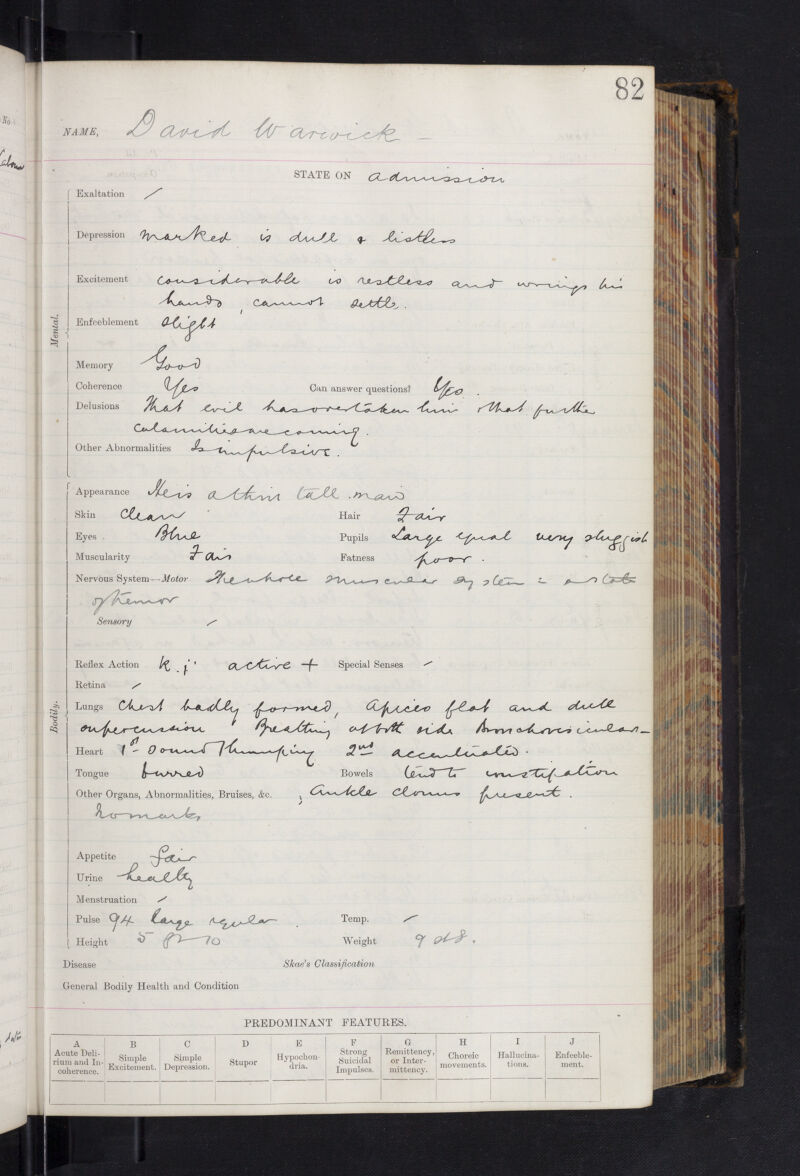 82
NAME, David Warwick –
STATE ON admission
Mental.
Exaltation /
Depression marked is dull & listless
Excitement considerable is restless and wrings his
hands, cannot settle.
Enfeeblement slight
Memory Good
Coherence Yes Can answer questions? Yes.
Delusions That evil has overtaken him & that further
calamities are coming.
Other Abnormalities Is impulsive.
Bodily.
Appearance He is a thin tall man
Skin Clean Hair Fair
Eyes Blue Pupils Large equal very sluggish
Muscularity Fair Fatness poor.
Nervous System—Motor The whole muscular system is in a state
of tremor
Sensory /
Reflex Action K.j. active + Special Senses /
Retina /
Lungs Chest badly formed, Apices flat and dull
on percussion Breathing at both side Bronchovesicular–
Heart 1st sound thumping 2nd accentuated.
Tongue furred Bowels tend to constipation
Other Organs, Abnormalities, Bruises, &c. , Ankle clonus present.
no marks
Appetite fair
Urine healthy
Menstruation /
Pulse 94 large regular. Temp. /
Height 5 Weight 9 st 8.
Disease Skae's Classification
General Bodily Health and Condition
PREDOMINANT FEATURES.
A B C D E F G H I J
Acute Deli- Simple Simple Stupor Hypochon- Strong Remittency, Choreic Hallucina- Enfeeble-
rium and In- Excitement. Depression. dria. Suicidal or Inter- movements. tions. ment.
coherence. Impulses. mittency.